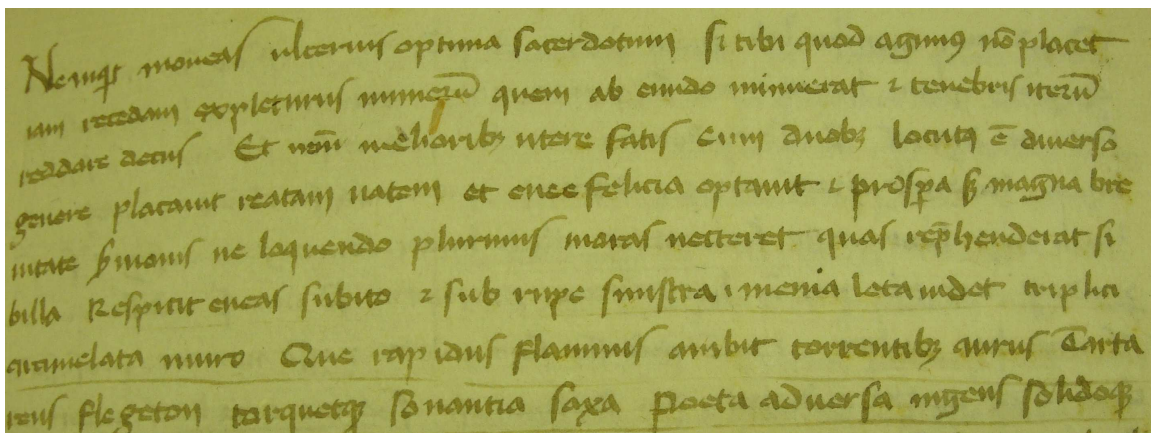 Ne inqt moveas ulterius optima sacerdotum si tibi quod agimus nō placet
iam recedam expleturus numerū quem ab eundo minuerat & tenebris iterū
reddare decus Et nr̄m melioribꝫ utere fatis Cum duobꝫ locutꝰ ē diverso
genere placavit reatam vatem et enee felicia optavit & prospa sꝫ magna bre
vitate smonis ne loquendo plurimis moras necteret quas rephenderat si
billa Respicit eneas subito & sub rupe sinistra menia leta videt triplici
circumelata muro Que rapidus flammis ambit torrentibꝫ aurus Tarta
reus flegeton torquetqꝫ sonantia saxa Poeta adversa ingens solidoqꝫ